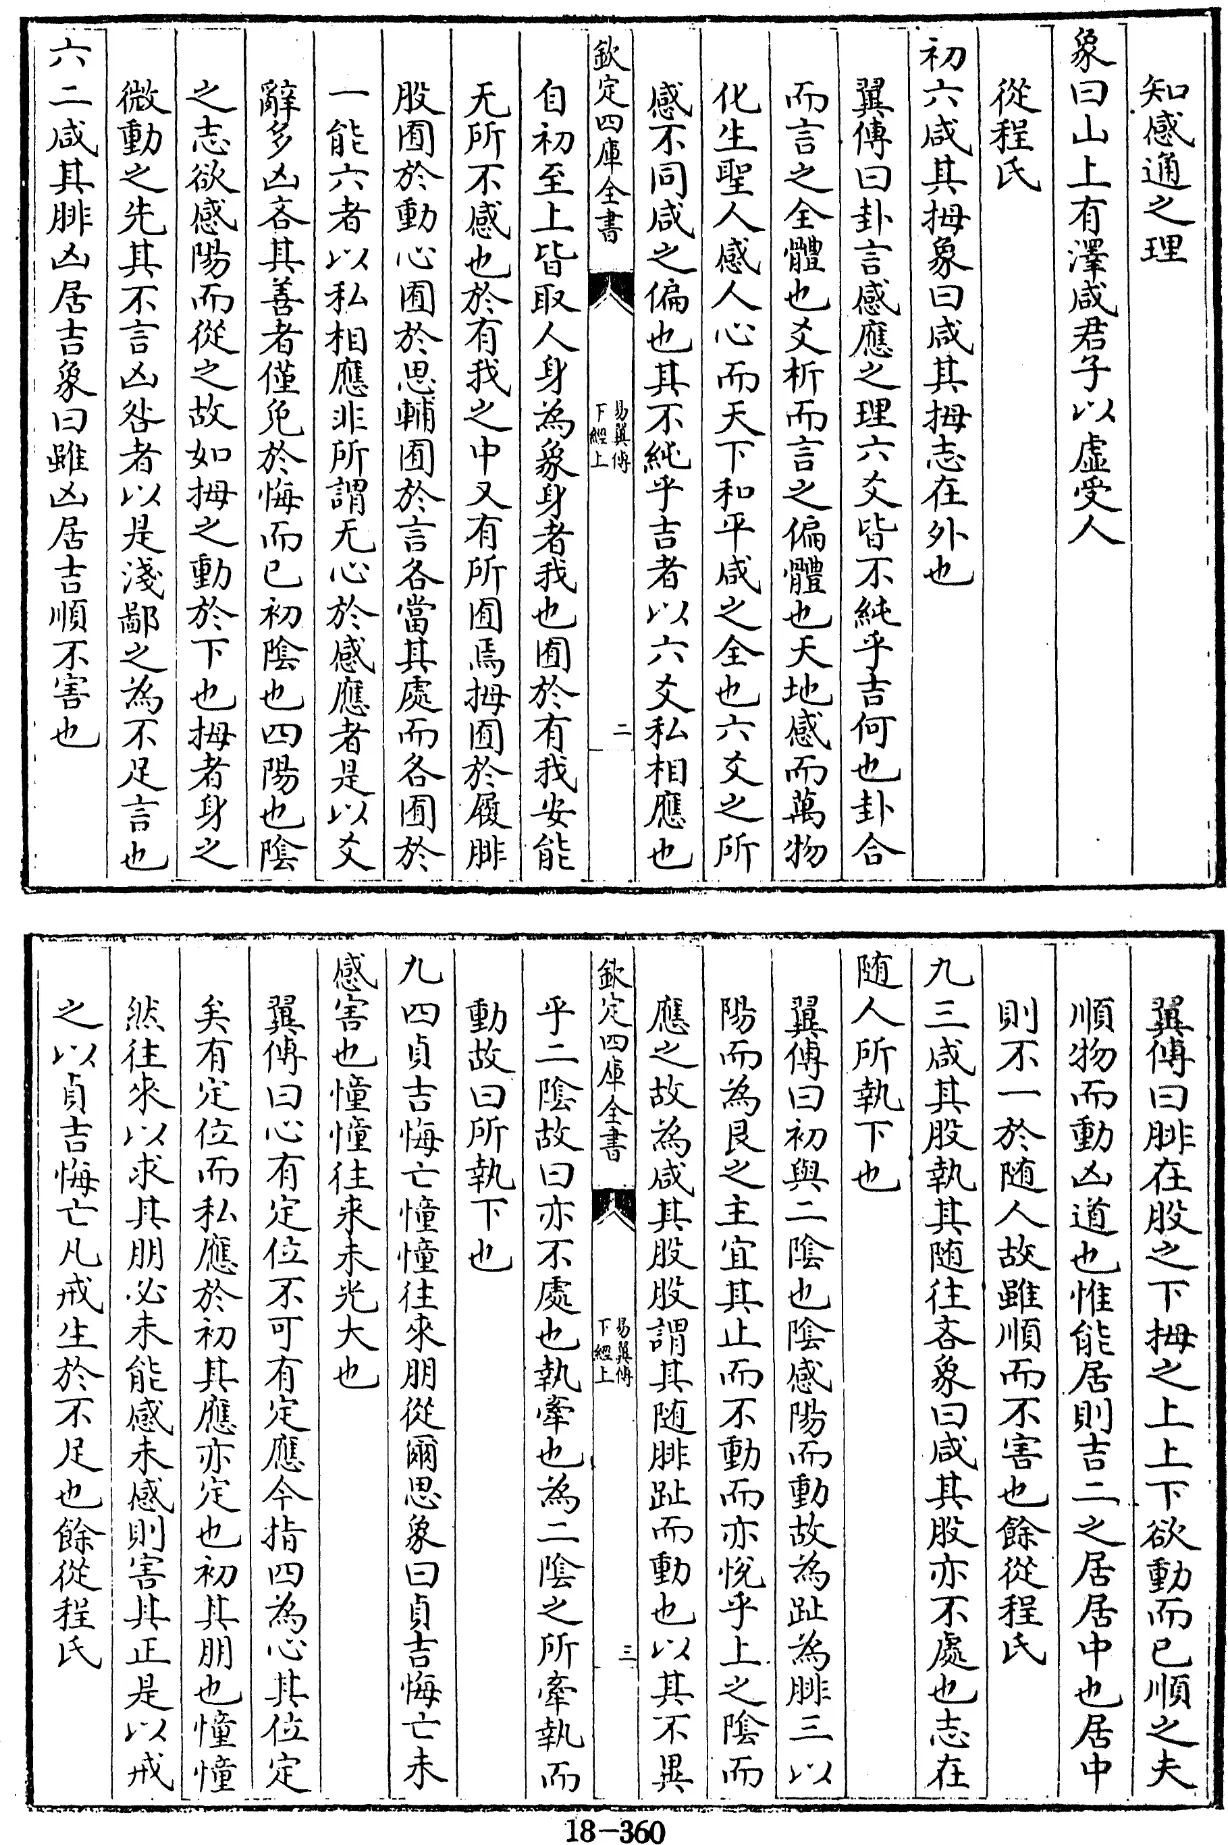 知感通之理
象曰山上有澤咸君子以虛受人
從程氏
初六咸其拇象曰咸其拇志在外也
翼傳曰卦言感應之理六爻皆不純乎吉何也卦合
而言之全體也爻析而言之偏體也天地感而萬物
化生聖人感人心而天下和平咸之全也六爻之所
感不同咸之偏也其不純乎吉者以六爻私相應也
欽定四庫全書
易翼傳
下經上
二
自初至上皆取人身為象身者我也囿於有我安能
无所不感也於有我之中又有所囿焉拇囿於履腓
股囿於動心囿於思輔囿於言各當其處而各囿於
一能六者以私相應非所謂无心於感應者是以爻
辭多凶吝其善者僅免於悔而已初陰也四陽也陰
之志欲感陽而從之故如拇之動於下也拇者身之
微動之先其不言凶咎者以是淺鄙之為不足言也
六二咸其腓凶居吉象曰雖凶居吉順不害也
翼傳曰腓在股之下拇之上上下欲動而已順之夫
順物而動凶道也惟能居則吉二之居居中也居中
則不一於随人故雖順而不害也餘從程氏
九三咸其股執其随往吝象曰咸其股亦不處也志在
随人所執下也
翼傳曰初與二陰也陰感陽而動故為趾為腓三以
陽而為艮之主宜其止而不動而亦悅乎上之陰而
應之故為咸其股股謂其随腓趾而動也以其不異
欽定四庫全書
易翼傳
下經上
三
乎二陰故曰亦不處也執牽也為二陰之所牽執而
動故曰所執下也
九四貞吉悔亡憧憧往來朋從爾思象曰貞吉悔亡未
感害也憧憧往来未光大也
翼傳曰心有定位不可有定應今指四為心其位定
矣有定位而私應於初其應亦定也初其朋也憧憧
然往來以求其朋必未能感未感則害其正是以戒
之以貞吉悔亡凡戒生於不足也餘從程氏
18-360